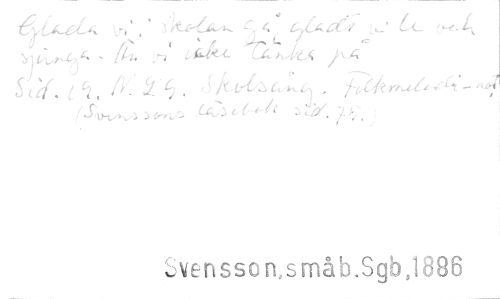 Glada vi i skolan gå, gladt vi le och
sjunga. An vi icke tänka på
Sid. 19. N. 29. Skolsång. Folkmelodi - not
(Svenssons läsebok sid. 75.)
Svensson,småb.Sgb,1886